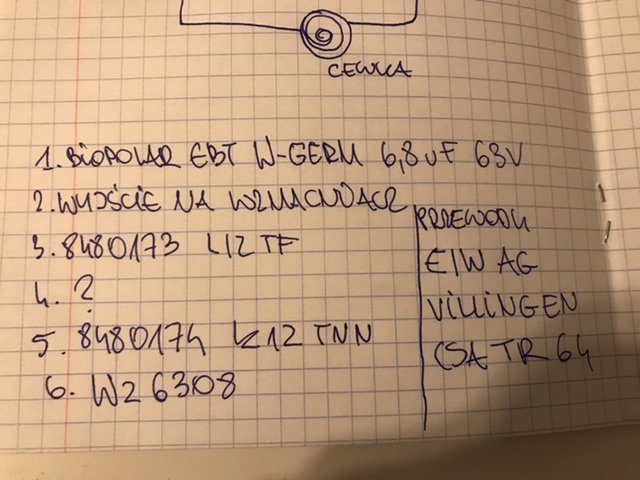 CEWKA
1. BIOPOLAR EBT W-GERM 6,8 uF 63V
2. WYJŚCIE NA WZMACNIACZ
3. 8480173 L12 TF
4. ?
5. 8480174 K12 TNN
6. WZ 6308
PRZEWODY
EIW AG
VILLINGEN
CSA TR 64